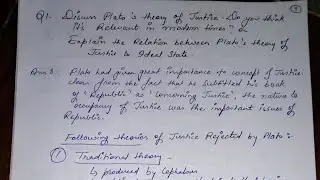 Q1. Discuss Plato's theory of Justice. Do you think
It's Relevant in modern times? or
Explain the Relation between Plato's theory of
Justice to Ideal State.
Ans: Plato had given great importance to concept of Justice
clear from the fact that he subtitled his book
of "Republic" as 'Concerning Justice', the nature
occupancy of Justice was the important issues of
Republic.
Following theories of Justice Rejected by Plato:-
① Traditional theory -
↳ produced by Cephalus